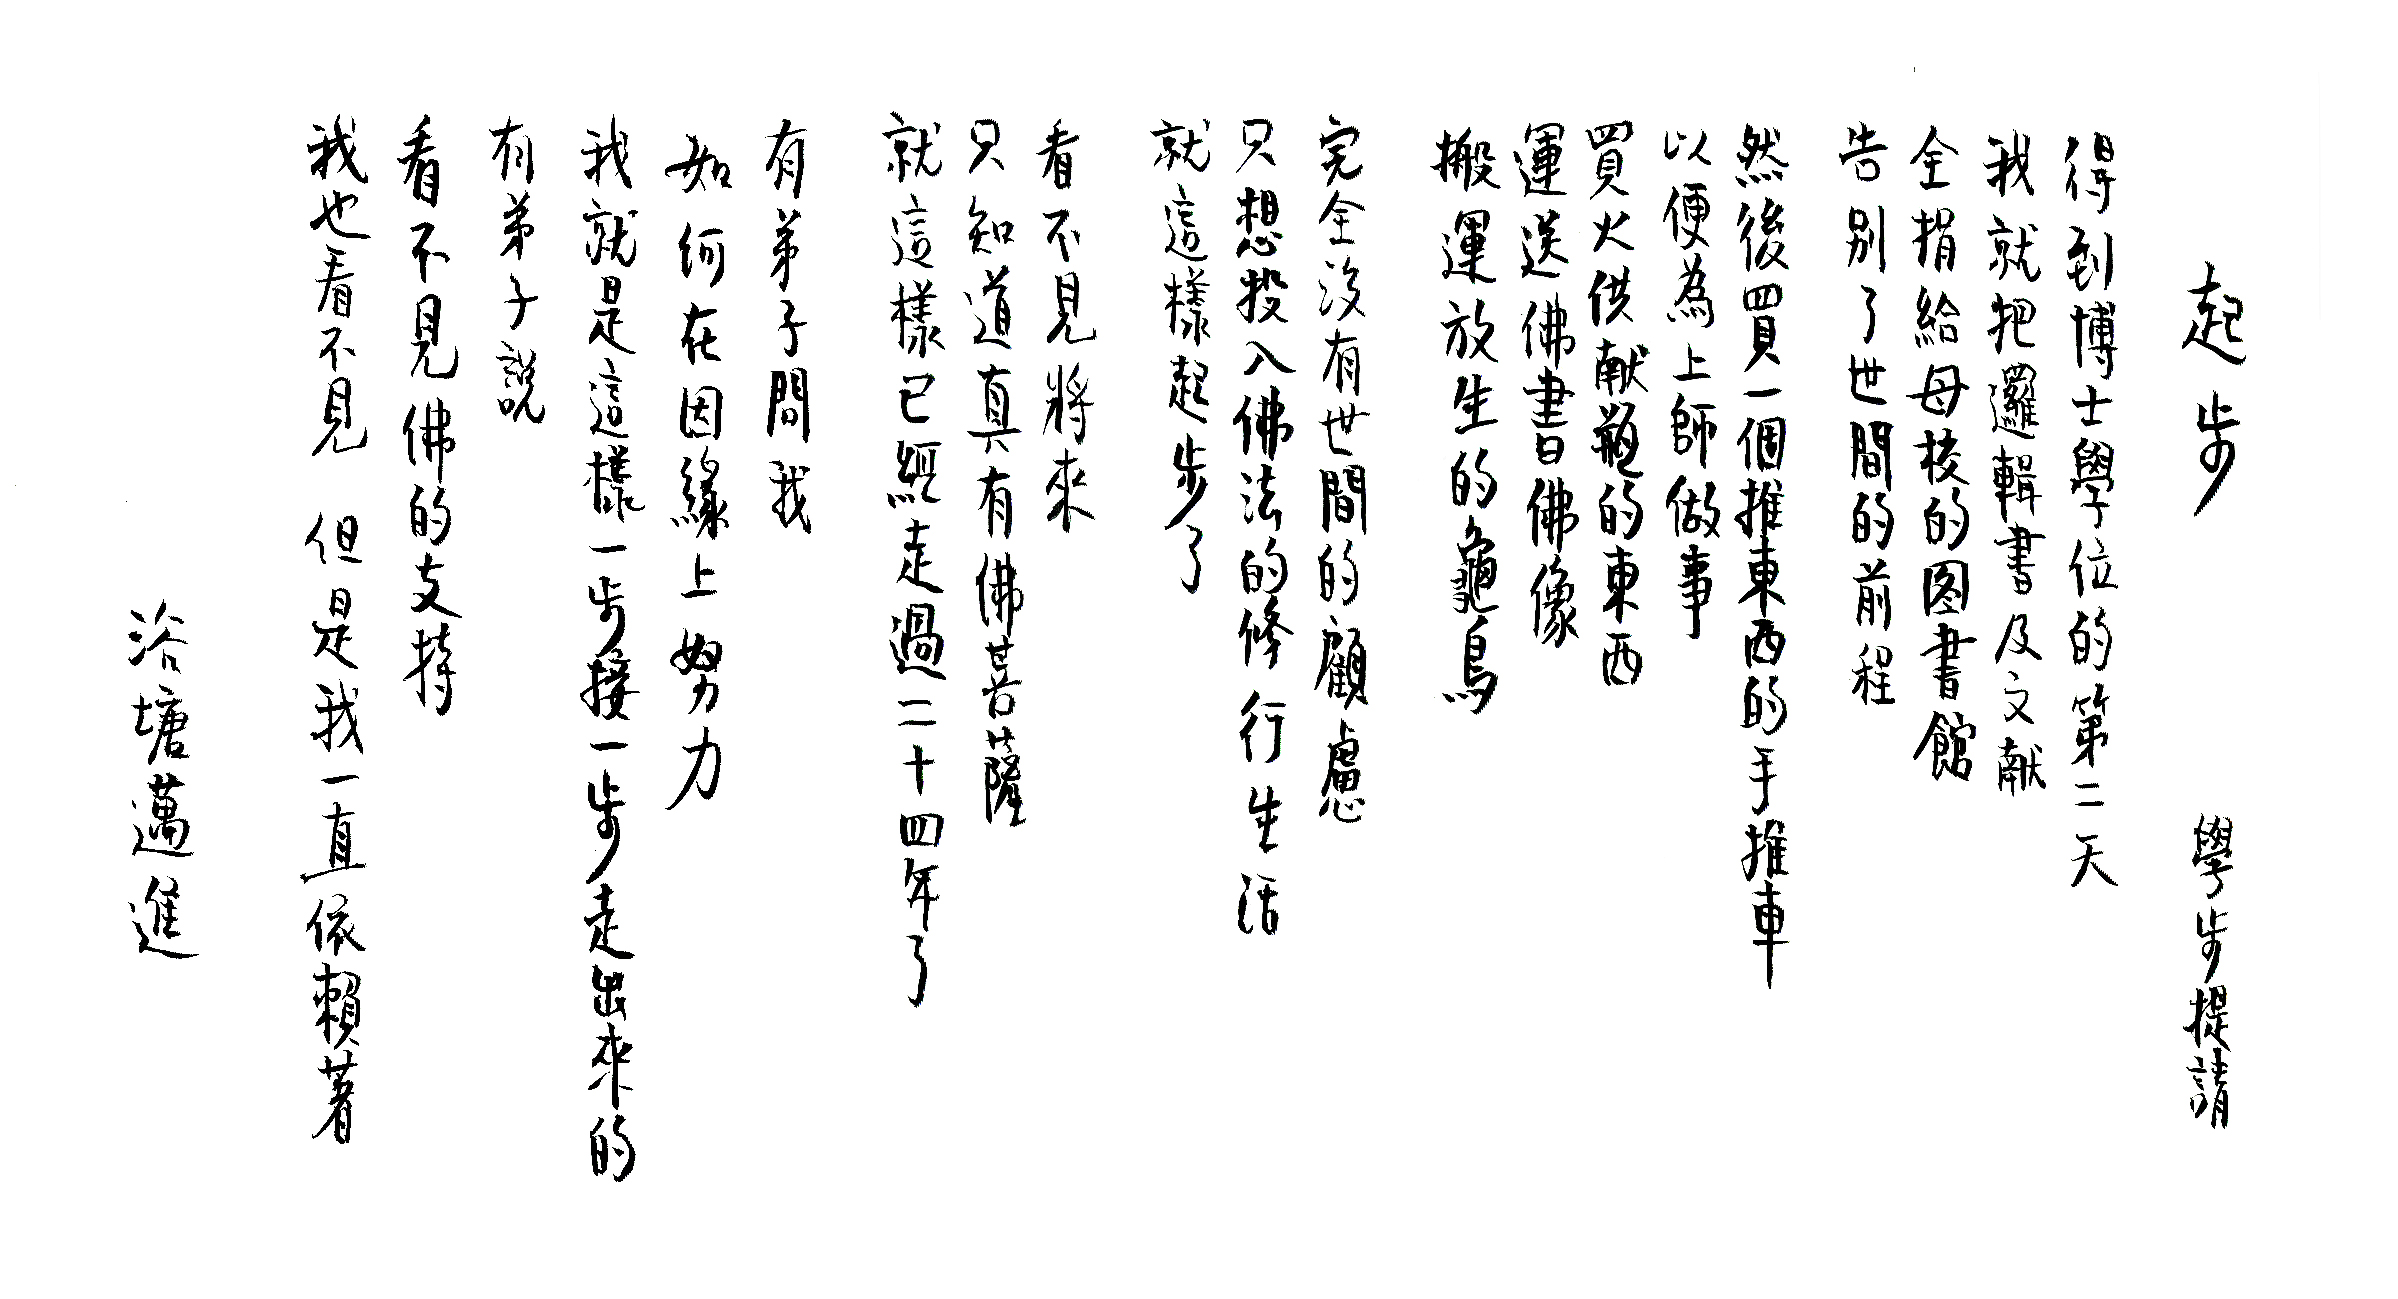 起步　　學步提請
得到博士學位的第二天
我就把邏輯書及文献
全捐給母校的图書館
告别了世間的前程
然後買一個推東西的手推車
以便為上師做事
買火供献瓶的東西
運送佛書佛像
搬運放生的龜鳥
完全没有世間的顧慮
只想投入佛法的修行生活
就這樣起步了
看不見將來
只知道真有佛菩薩
就這樣已經走過二十四年了
有弟子問我
如何在因緣上努力
我就是這樣一步接一步走出來的
有弟子説
看不見佛的支持
我也看不見　但是我一直依賴著
浴塘邁進